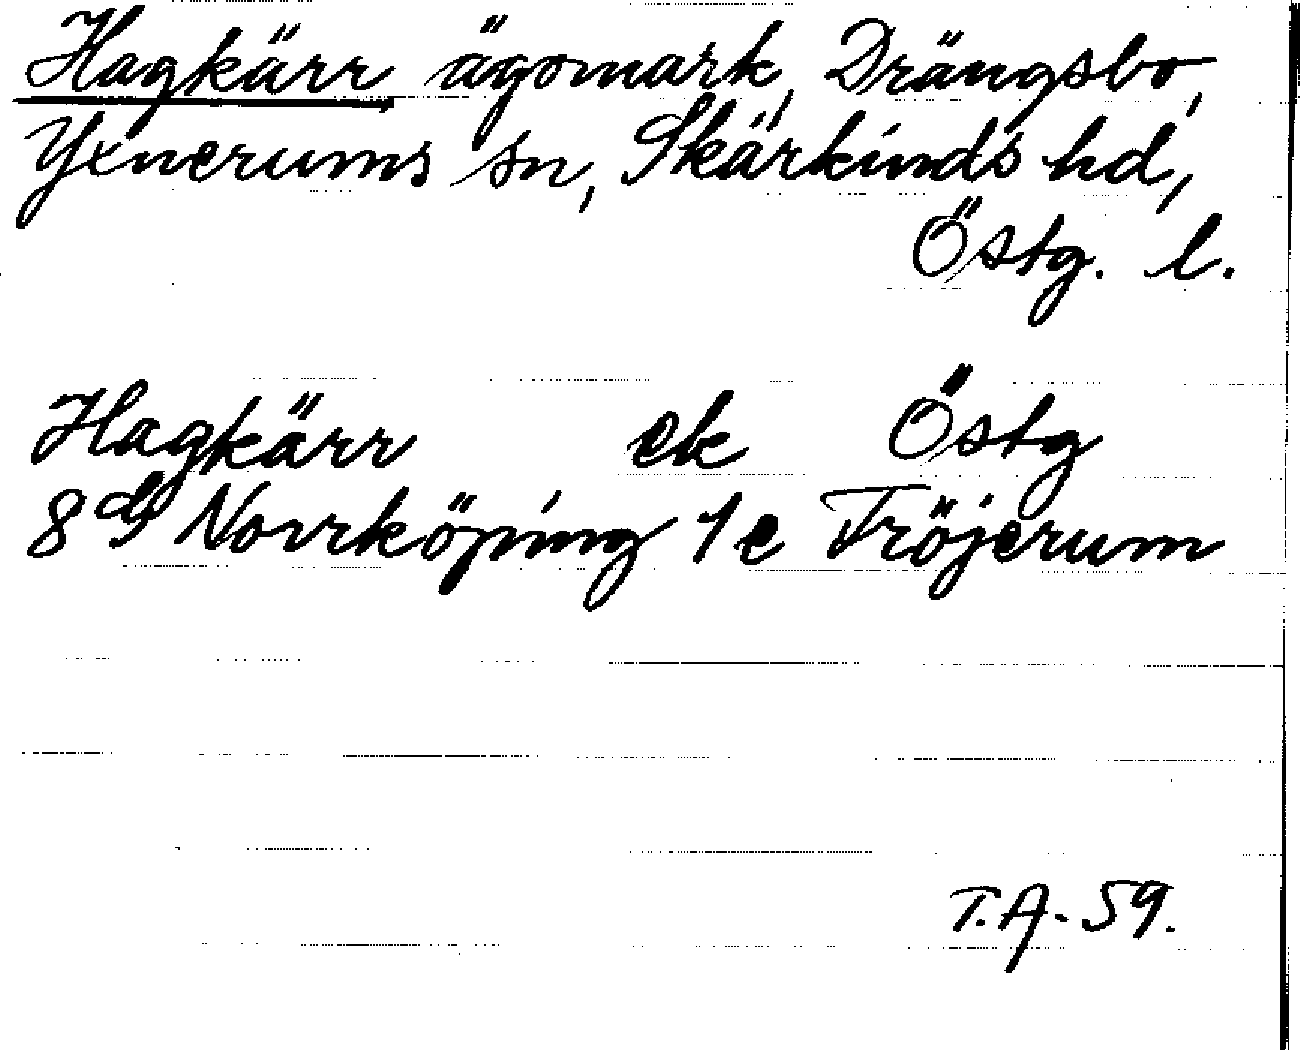 Hagkärr ägomark, Drängsbo,
Yxnerums sn, Skärkinds hd,
Östg. l.
Hagkärr ek Östg
8 G Norrköping 1 e Fröjerum
T.A-59.